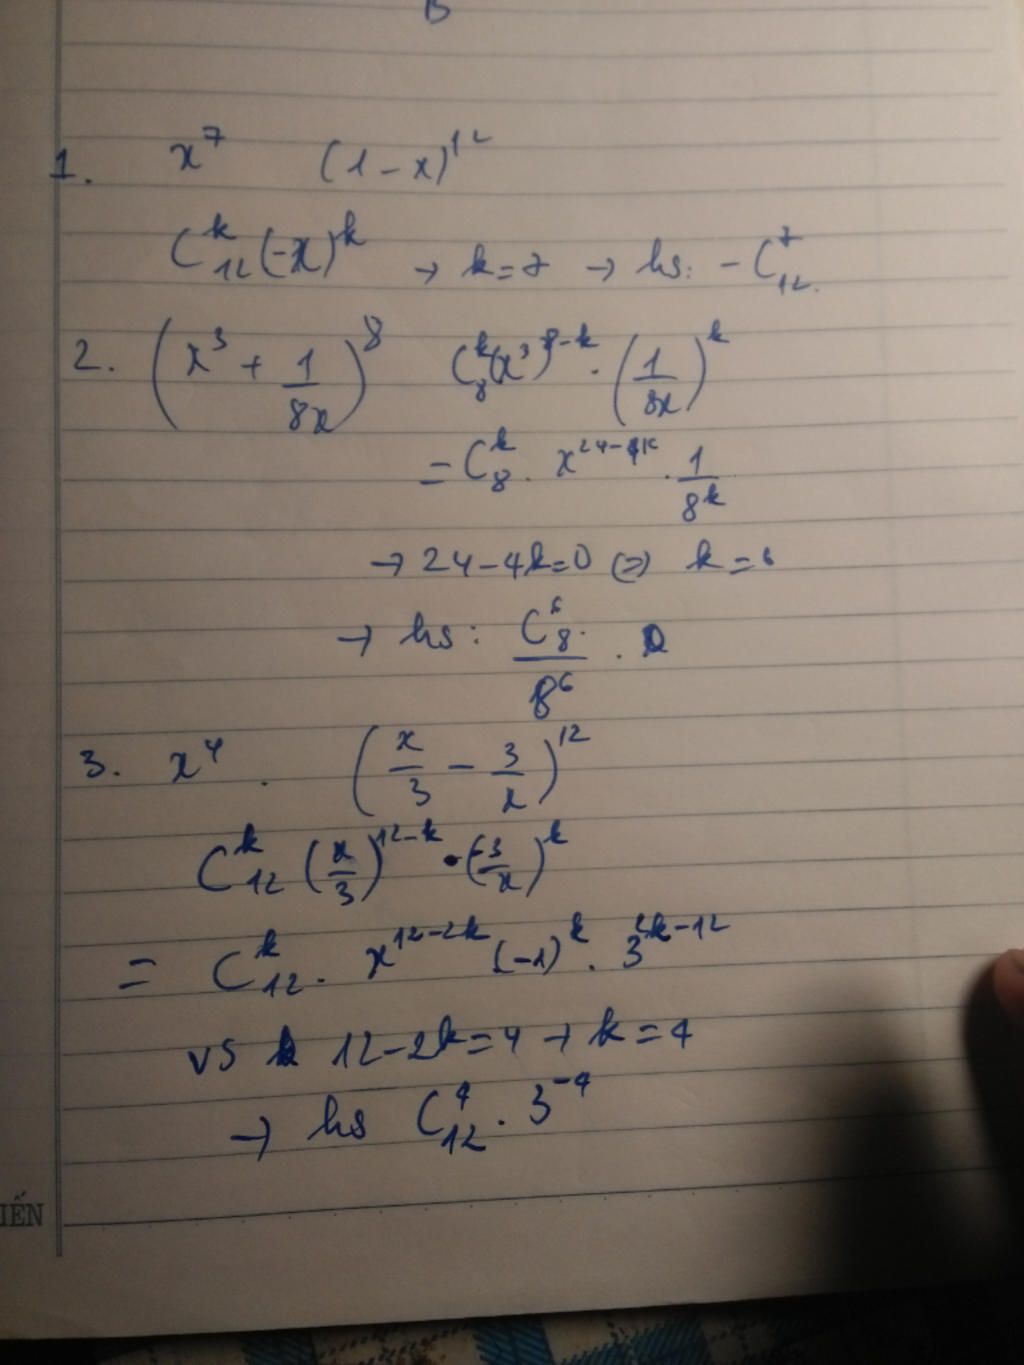 B
1. x⁷ (1 - x)¹²
C₁₂ᵏ (-x)ᵏ → k = 7 → hs: - C₁₂⁷.
2. (x³ + 1/8x)⁸ C₈ᵏ (x³)⁸⁻ᵏ . (1/8x)ᵏ
= C₈ᵏ . x²⁴⁻⁴ᵏ . 1/8ᵏ
→ 24 - 4k = 0 (=) k = 6
→ hs: C₈⁶/8⁶ .
3. x⁴ . (x/3 - 3/x)¹²
C₁₂ᵏ (x/3)¹²⁻ᵏ . (-3/x)ᵏ
= C₁₂ᵏ . x¹²⁻²ᵏ (-1)ᵏ . 3²ᵏ⁻¹²
vs 12 - 2k = 4 → k = 4
→ hs C₁₂⁴ . 3⁻⁴
IẾN